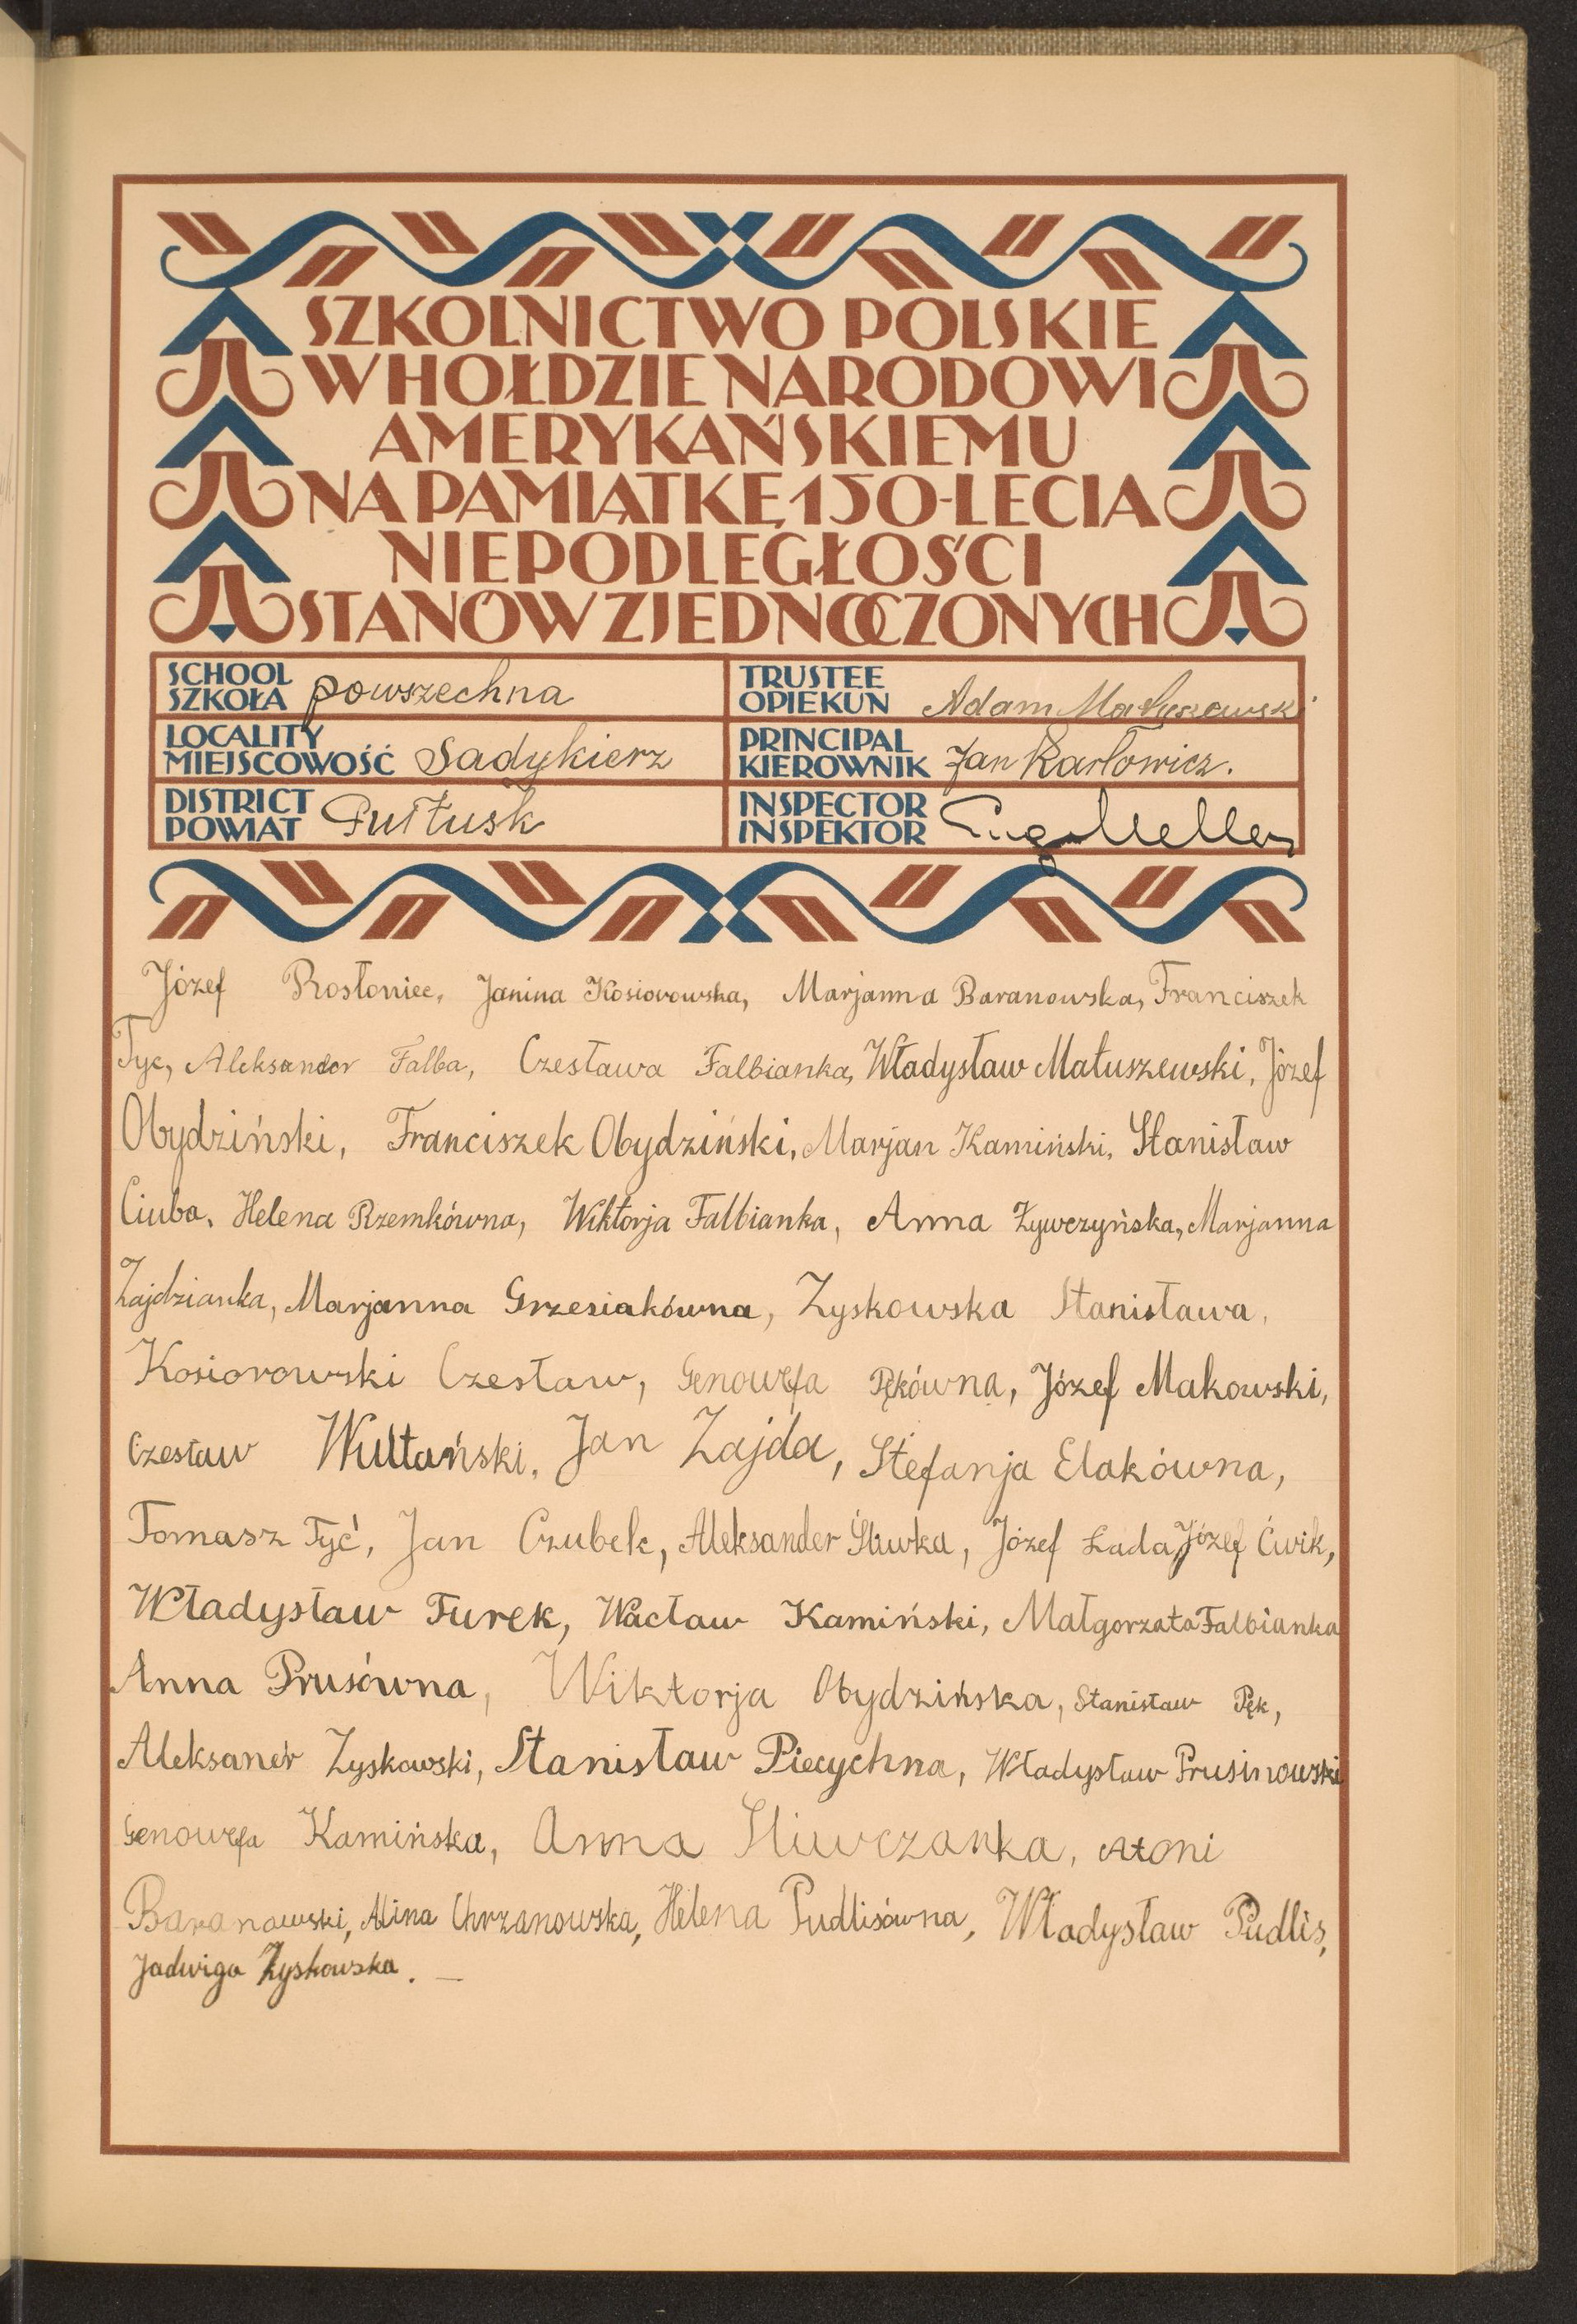 SZKOLNICTWO POLSKIE
W HOŁDZIE NARODOWI
AMERYKAŃSKIEMU
NA PAMIĄTKĘ 150-LECIA
NIEPODLEGŁOŚCI
STANÓW ZJEDNOCZONYCH
SCHOOL
SZKOŁA powszechna
TRUSTEE
OPIEKUN Adam Matuszewski
LOCALITY
MIEJSCOWOŚĆ Sadykierz
PRINCIPAL
KIEROWNIK Jan Karłowicz.
DISTRICT
POWIAT Pułtusk
INSPECTOR
INSPEKTOR
Józef Rosłoniec, Janina Kosiorowska, Marjanna Baranowska, Franciszek
Tyc, Aleksander Falba, Czesława Falbianka, Władysław Matuszewski, Józef
Obydziński, Franciszek Obydziński, Marjan Kamiński, Stanisław
Ciuba, Helena Rzemkówna, Wiktorja Falbianka, Anna Żywczyńska, Marjanna
Zajdzianka, Marjanna Grzesiakówna, Zyskowska Stanisława,
Kosiorowski Czesław, Genowefa Pękówna, Józef Makowski,
Czesław Wultański, Jan Zajda, Stefanja Elakówna,
Tomasz Tyć, Jan Czubek, Aleksander Śliwka, Józef Łada, Józef Ćwik,
Władysław Turek, Wacław Kamiński, Małgorzata Falbianka
Anna Prusówna, Wiktorja Obydzińska, Stanisław Pęk,
Aleksanér Zyskowski, Stanisław Piecychna, Władysław Prusinowski
Genowefa Kamińska, Anna Śliwczanka, Atoni
Baranowski, Alina Chrzanowska, Helena Pudlisówna, Władysław Pudlis,
Jadwiga Zyskowska. —